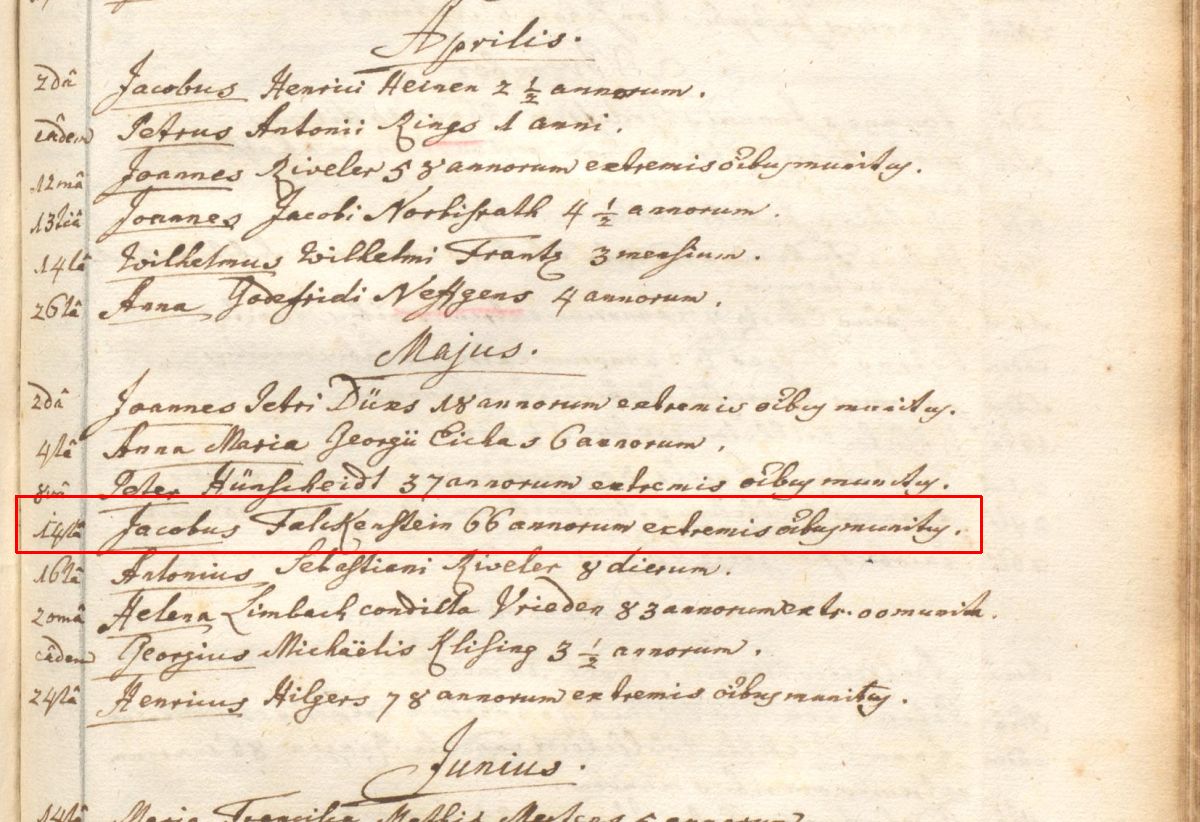 Aprilis.
2dâ Jacobus Henrici Heinen 2 1/2 annorum.
eâdem Petrus Antonii Rings 1 anni.
12mâ Joannes Riveler 58 annorum extremis oîbus munitus.
13tiâ Joannes Jacobi Norbisrath 4 1/2 annorum.
14tâ Wilhelmus Wilhelmi Frantz 3 mensium.
26tâ Anna Godefridi Neffgens 4 annorum.
Majus.
2dâ Joannes Petri Düxs 18 annorum extremis oîbus munitus.
4tâ Anna Maria Georgii Eichas 6 annorum.
8vâ Peter Hünscheidt 37 annorum extremis oîbus munitus.
14tâ Jacobus Falckenstein 66 annorum extremis oîbus munitus.
16tâ Antonius Sebastiani Riveler 8 dierum.
20mâ Helena Limbach condicta Vrieden 83 annorum extr. oo munita.
eâdem Georgius Michäelis Klising 3 1/2 annorum.
24tâ Henricus Hilgers 78 annorum extremis oîbus munitus.
Junius.
14tâ Maria 5 annorum